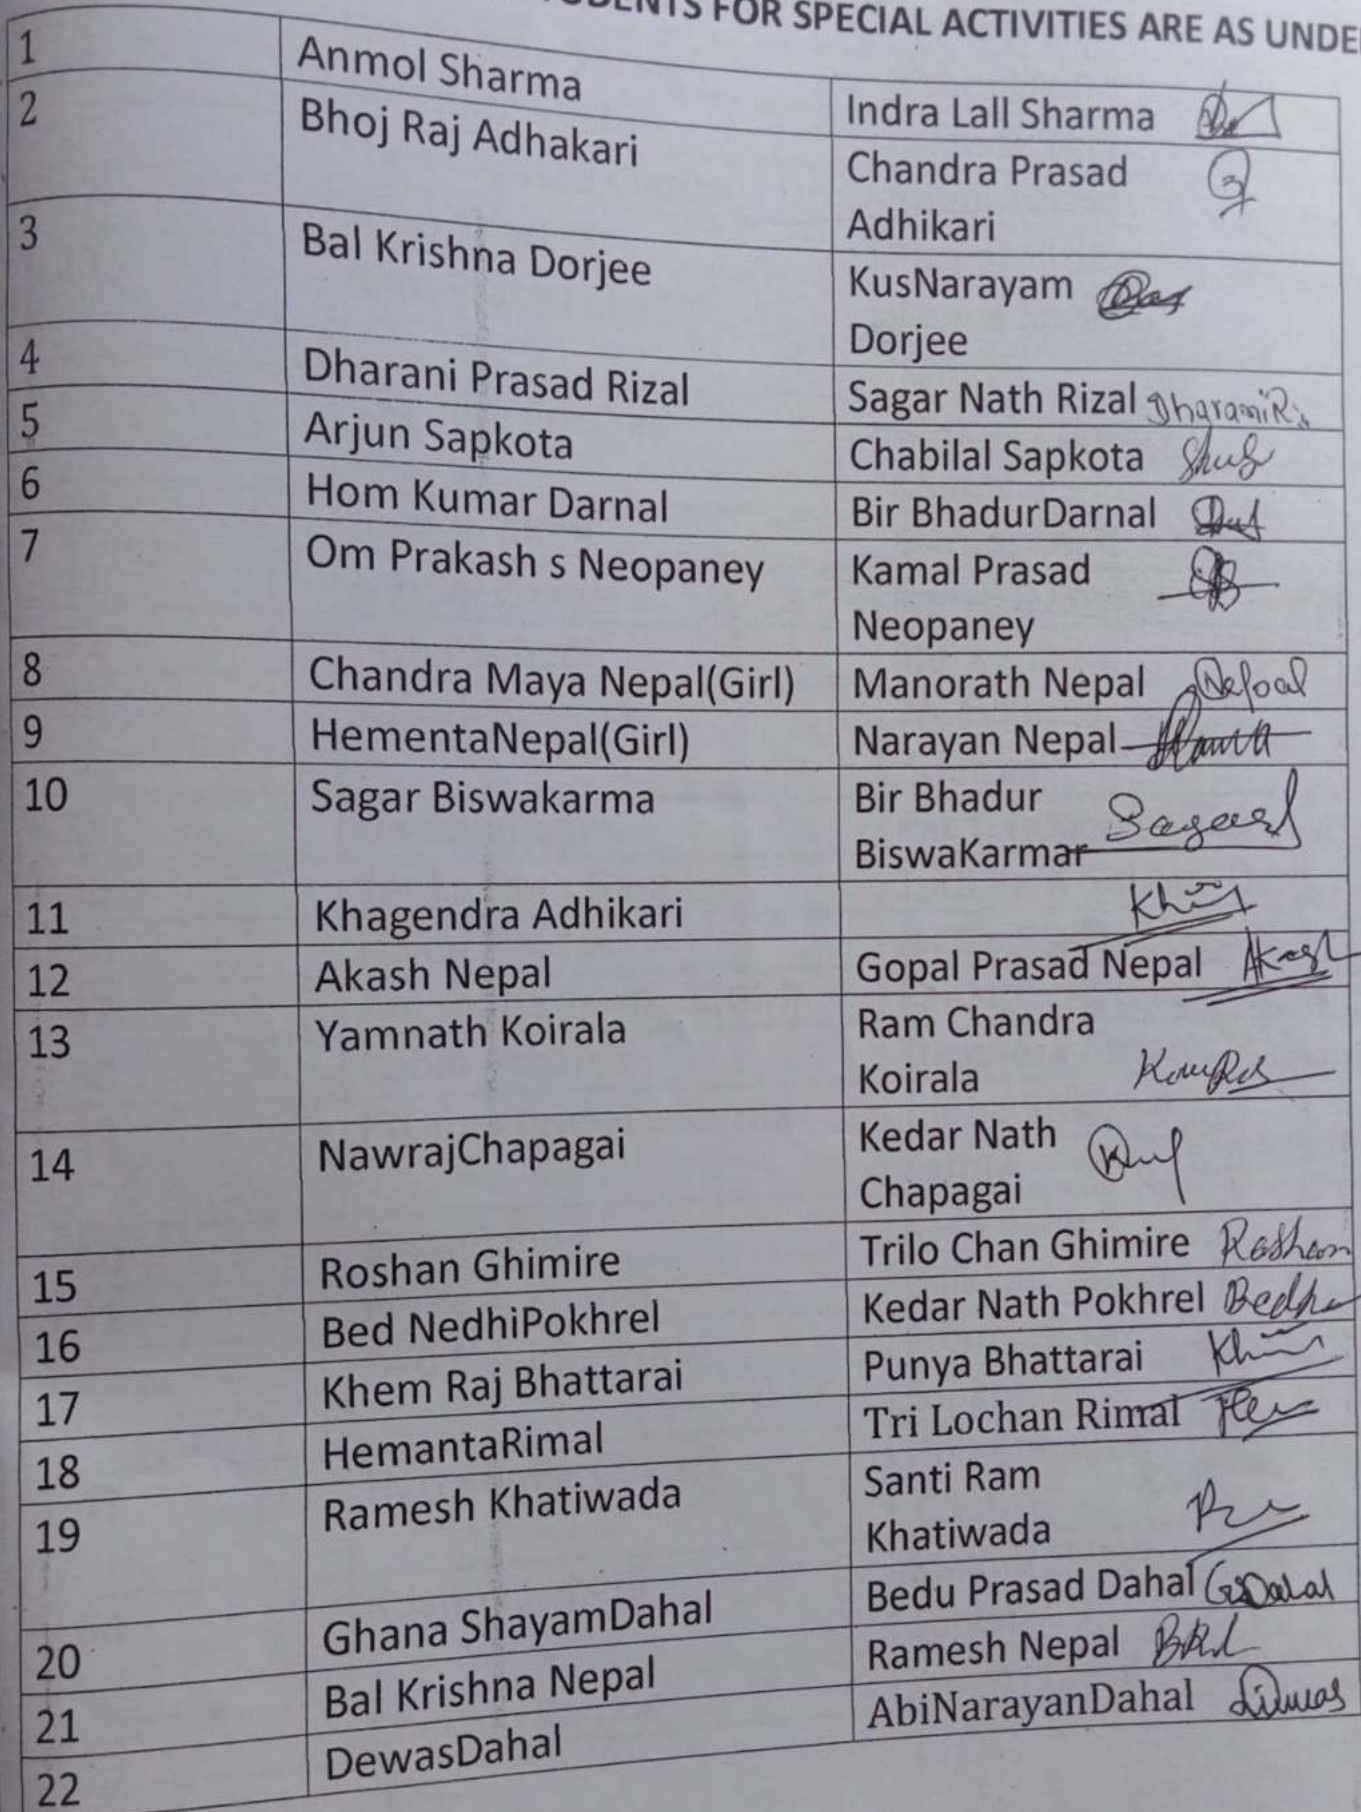 FOR SPECIAL ACTIVITIES ARE AS UNDE
1 Anmol Sharma Indra Lall Sharma
2 Bhoj Raj Adhakari Chandra Prasad
Adhikari
3 Bal Krishna Dorjee KusNarayam
Dorjee
4 Dharani Prasad Rizal Sagar Nath Rizal DharaniR.
5 Arjun Sapkota Chabilal Sapkota
6 Hom Kumar Darnal Bir BhadurDarnal
7 Om Prakash s Neopaney Kamal Prasad
Neopaney
8 Chandra Maya Nepal(Girl) Manorath Nepal Nepal
9 HementaNepal(Girl) Narayan Nepal
10 Sagar Biswakarma Bir Bhadur
BiswaKarmar
11 Khagendra Adhikari
12 Akash Nepal Gopal Prasad Nepal Akash
13 Yamnath Koirala Ram Chandra
Koirala
14 NawrajChapagai Kedar Nath
Chapagai
15 Roshan Ghimire Trilo Chan Ghimire Roshan
16 Bed NedhiPokhrel Kedar Nath Pokhrel
17 Khem Raj Bhattarai Punya Bhattarai
18 HemantaRimal Tri Lochan Rimal
19 Ramesh Khatiwada Santi Ram
Khatiwada
20 Ghana ShayamDahal Bedu Prasad Dahal GSDahal
21 Bal Krishna Nepal Ramesh Nepal
22 DewasDahal AbiNarayanDahal